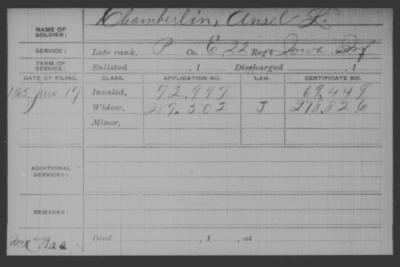 NAME OF SOLDIER: Chamberlin, Ansel L.
SERVICE: Late rank, P Co. E 22 Reg't Iowa Inf
TERM OF SERVICE: Enlisted , 1 Discharged , 1
DATE OF FILING. CLASS. APPLICATION NO. LAW. CERTIFICATE NO.
June 17 Invalid, 72.997 69.449
Widow, 287.502 J 278.826
Minor,
ADDITIONAL SERVICES:
REMARKS:
Died , 1 , at